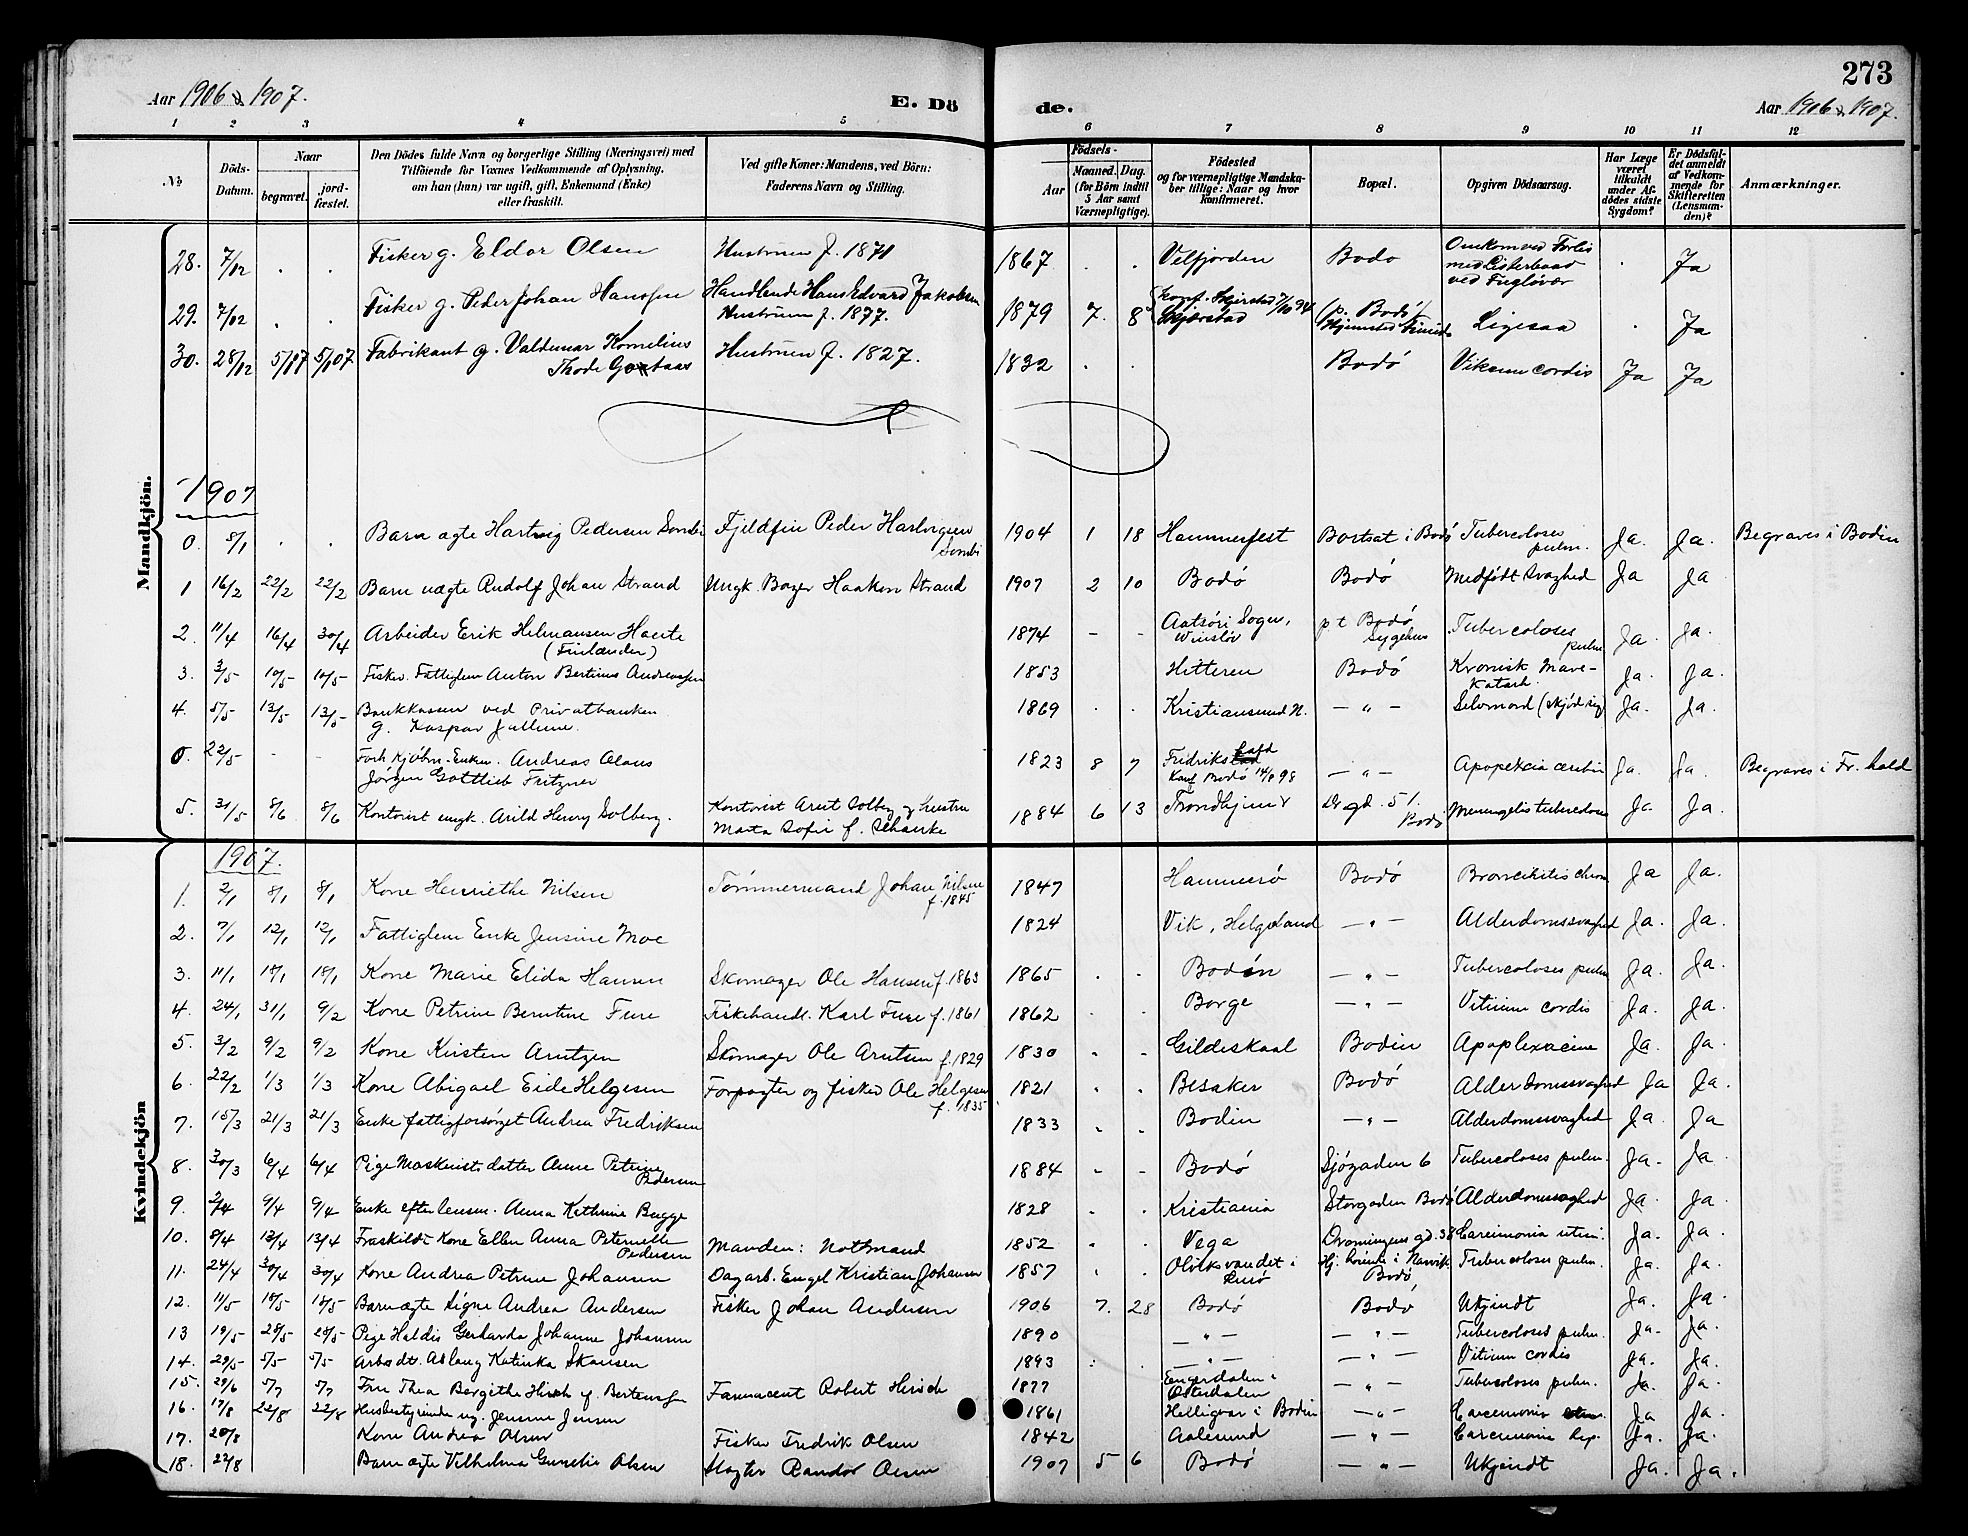 273
Aar 1906 & 1907.
E. Dö de.
Aar 1906 & 1907.
1 2 3 4 5 6 7 8 9 10 11 12
No.
Döds-Datum.
Naar
begravet.
jord-fæstet.
Den Dödes fulde Navn og borgerlige Stilling (Næringsvei) med
Tilföiende for Voxnes Vedkommende af Oplysning,
om han (hun) var ugift, gift, Enkemand (Enke)
eller fraskilt.
Ved gifte Koner: Mandens, ved Börn:
Faderens Navn og Stilling.
Födsels-
Aar
Maaned. Dag.
(for Börn indtil
5 Aar samt
Værnepligtige).
Födested
og for værnepligtige Mandska-
ber tillige: Naar og hvor
konfirmeret.
Bopæl.
Opgiven Dödsaarsag.
Har Læge
været
tilkaldt
under Af-
dödes sidste
Sygdom?
Er Dödsfal-
det anmeldt
af Vedkom-
mende for
Skifteretten
(Lensman-
den)?
Anmærkninger.
Mandkjön.
28. 7/12 . . Fisker g. Eldor Olsen Hustruen f. 1871 1867 . . Velfjorden Bodø Omkom ved Forlis med Listerbaad ved Fugløvær . Ja
29. 7/12 . . Fisker g. Peder Johan Hansen Handlende Hans Edvard Jakobsen
Hustruen f. 1877. 1879 7. 8 Konf. Skjerstad 7/10 94 Skjerstad (p. Bodø) Hjemsted Ligesaa . Ja
30. 28/12 5/1 07 5/1 07 Fabrikant g. Valdemar Kornelius
Thode Gaathaas Hustruen f. 1827. 1832 . . Bodø Vitium cordis Ja Ja
1907
0. 8/1 . . Barn ægte Hartvig Pedersen Sombi Fjeldfin Peder Hartvigsen
Sombi 1904 1 18 Hammerfest Bortsat i Bodø Tubercoloses pulm. Ja. Ja. Begraves i Bodin
1 16/2 22/2 22/2 Barn uægte Rudolf Johan Strand Ungk. Bager Haakon Strand 1907 2 10 Bodø Bodø Medfødt Svaghed Ja Ja
2. 11/4 16/4 30/4 Arbeider Erik Helmansen Haerte
(Finlænder) 1874 - - Aatsöri Sogn, p t Bodø Sygehus Tubercoloses pulm Ja. Ja.
3. 3/5 10/5 10/5 Fisker. Fattiglem Anton Bertinus Andreassen 1853 Hitteren Bodø Kronisk Mave-
Katarh. Ja. Ja.
4. 5/5 13/5 13/5 Bankkasser ved Privatbanken
g. Kaspar Jullum. 1869 . . Kristiansund N. — " — Selvmord (skjød sig) Ja. Ja.
0. 22/5 - - Forh Kjøbm. Enkem. Andreas Olaus
Jørgen Gottlieb Fritzner 1823 8 7 Fredrikshald — " — Apopexia cerebri Ja. Ja. Begraves i Fr. hald
5. 31/5 8/6 8/6 Kontorist ungk. Arild Henry Solberg. Kontorist Arnt Solberg og hustru
Marta Sofie f. Schanke 1884 6 13 Konf Bodø 14/8 98 Trondhjem Dr gd. 51. Bodø Meningitis tuberculosa Ja. Ja.
Kvindekjön
1907.
1. 2/1 8/1 8/1 Kone Henriethe Nilsen Tømmermand Johan Nilsen
f. 1845 1847 Hammerø Bodø Bronchitis chron Ja Ja.
2. 7/1 12/1 12/1 Fattiglem Enke Jensine Moe 1824 Vik, Helgeland — " — Alderdomssvaghed Ja. Ja.
3. 11/1 18/1 18/1 Kone Marie Elida Hansen Skomager Ole Hansen f. 1863 1865 . . Bodin — " — Tubercoloses pulm Ja. Ja.
4. 24/1 31/1 9/2 Kone Petrine Berntine Fure Fiskehandl. Karl Fure f. 1861 1862 . . Borge — " — Vitium cordis Ja. Ja.
5. 3/2 9/2 9/2 Kone Kirsten Arntzen Skomager Ole Arntsen f. 1829 1830 . . Gildeskaal Bodin Apoplexacine Ja. Ja.
6. 22/2 1/3 1/3 Kone Abigael Eide Helgesen Forpagter og fisker Ole Helgesen
f. 1835 1821 . . Besaker Bodø Alderdomssvaghed Ja Ja.
7. 15/3 21/3 21/3 Enke fattigforsørget Andrea Fredriksen 1833 . . Bodin — " — Alderdomssvaghed Ja Ja
8. 30/3 6/4 6/4 Pige Maskinist datter Anna Petrine
Pedersen 1884 - - Bodø Sjøgaden 6 Tubercoloses pulm. Ja. Ja.
9. 2/4 9/4 9/4 Enke efter lensm. Anna Kathrine Bugge 1828 . . Kristiania Storgaden Bodø Alderdomssvaghed Ja. Ja.
10. 8/4 13/4 13/4 Fraskildt Kone Ellen Anna Peternelle
Pedersen Manden: Nothmand 1852 . . Vega Dronningens gd. 38 Carcimonia uteri. Ja. Ja.
11. 24/4 30/4 30/4 Kone Andrea Petrine Johansen Dagarb. Engel Kristian Johansen 1857 . . i Narvik Bodø Tubercoloses pulm. Ja. Ja.
12. 11/5 18/5 18/5 Barn ægte Signe Andrea Andersen Fisker Johan Andersen 1906 7. 28 Bodø Bodø Ukjendt Ja. Ja.
13 19/5 28/5 28/5 Pige Haldis Gerharda Johanne Johansen 1890 — " — — " — Tubercoloses pulm. Ja. Ja.
14. 29/5 5/5 5/5 Arbs dt. Aslaug Katinka Skansen 1893 . . — " — — " — Vitium cordis Ja. Ja.
15. 29/6 5/7 5/7 Fru Thea Bergithe Hirsch f. Berteussen Farmacent Robert Hirsch 1877 Engerdalen i
Østerdalen — " — Tubercoloses pulm. Ja. Ja.
16. 17/8 22/8 22/8 Husbestyrinde ug. Jensine Jensen 1861 Helligvær i Bodin — " — Carcemonia Ja Ja.
17. 20/8 Kone Andrea Olsen Fisker Fredrik Olsen 1842 Aalesund — " — Carcemonia hep. Ja. Ja.
18. 22/8 Barn ægte Vilhelma Olsen Slagter Randor Olsen 1907 5 6 Bodø — " — Ukjendt Ja. Ja.